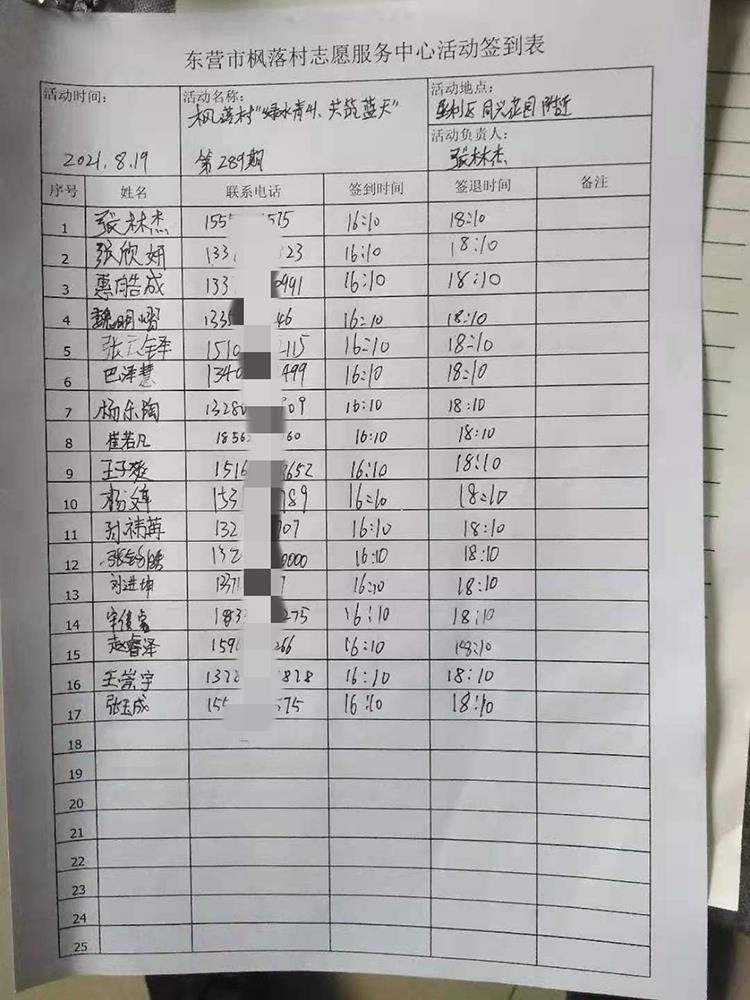 东营市枫落村志愿服务中心活动签到表
活动时间: 2021.8.19
活动名称: 枫落村"绿水青山、共筑蓝天" 第289期
活动地点: 垦利区同兴花园附近
活动负责人: 张林杰
序号 姓名 联系电话 签到时间 签退时间 备注
1 张林杰 155 575 16:10 18:10
2 张欣妍 133 23 16:10 18:10
3 惠皓成 133 991 16:10 18:10
4 魏明熠 133 46 16:10 18:10
5 张 泽 1510 115 16:10 18:10
6 巴泽慧 1340 499 16:10 18:10
7 杨乐陶 13280 09 16:10 18:10
8 崔若凡 1856 60 16:10 18:10
9 王子 1516 3652 16:10 18:10
10 杨 153 789 16:10 18:10
11 孙祎苒 132 707 16:10 18:10
12 张 132 0000 16:10 18:10
13 刘进坤 1371 7 16:10 18:10
14 183 275 16:10 18:10
15 赵睿泽 159 266 16:10 18:10
16 王崇宇 132 828 16:10 18:10
17 张玉成 155 575 16:10 18:10
18
19
20
21
22
23
24
25